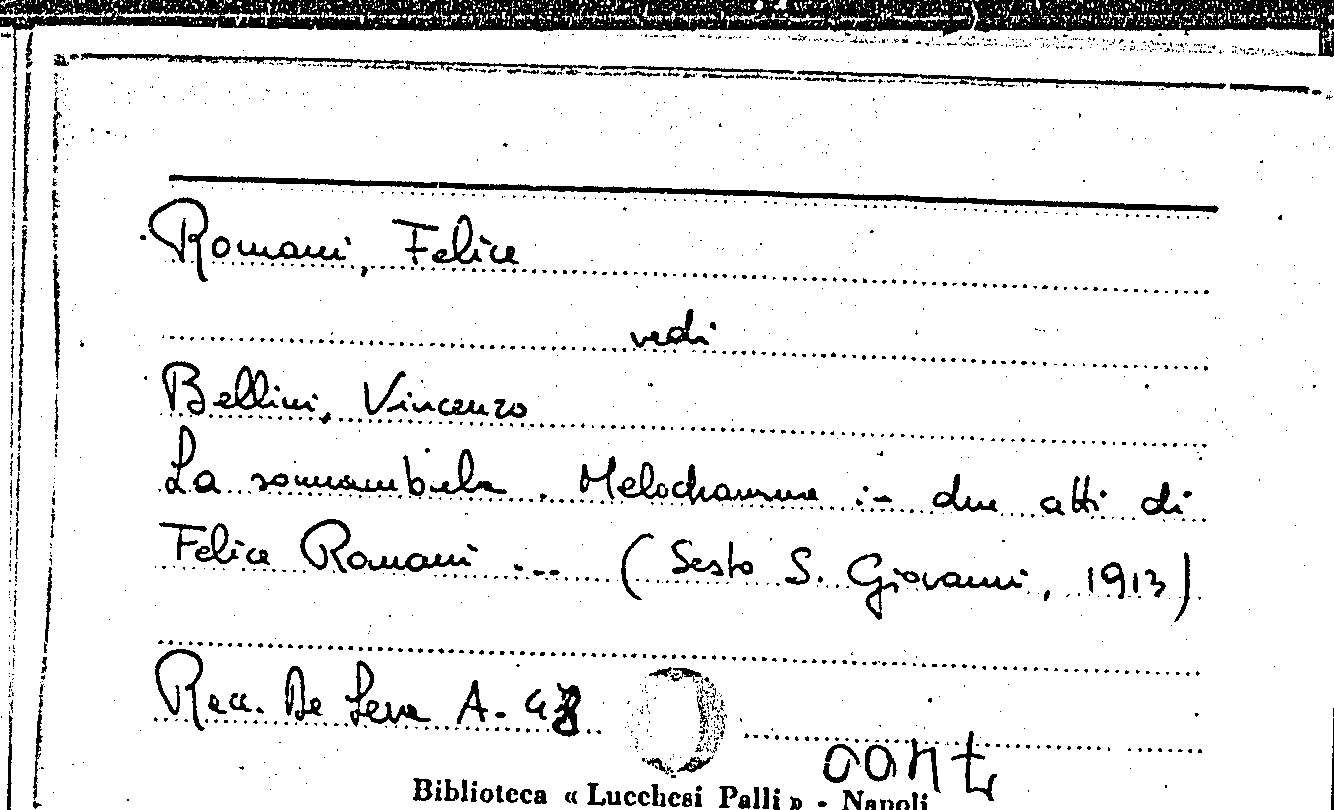 Romani, Felice
vedi
Bellini, Vincenzo
La sonnambula. Melodramma in due atti di
Felice Romani ... (Sesto S. Giovanni, 1913)
Racc. De Leva A. 
Biblioteca « Lucchesi Palli » - Napoli